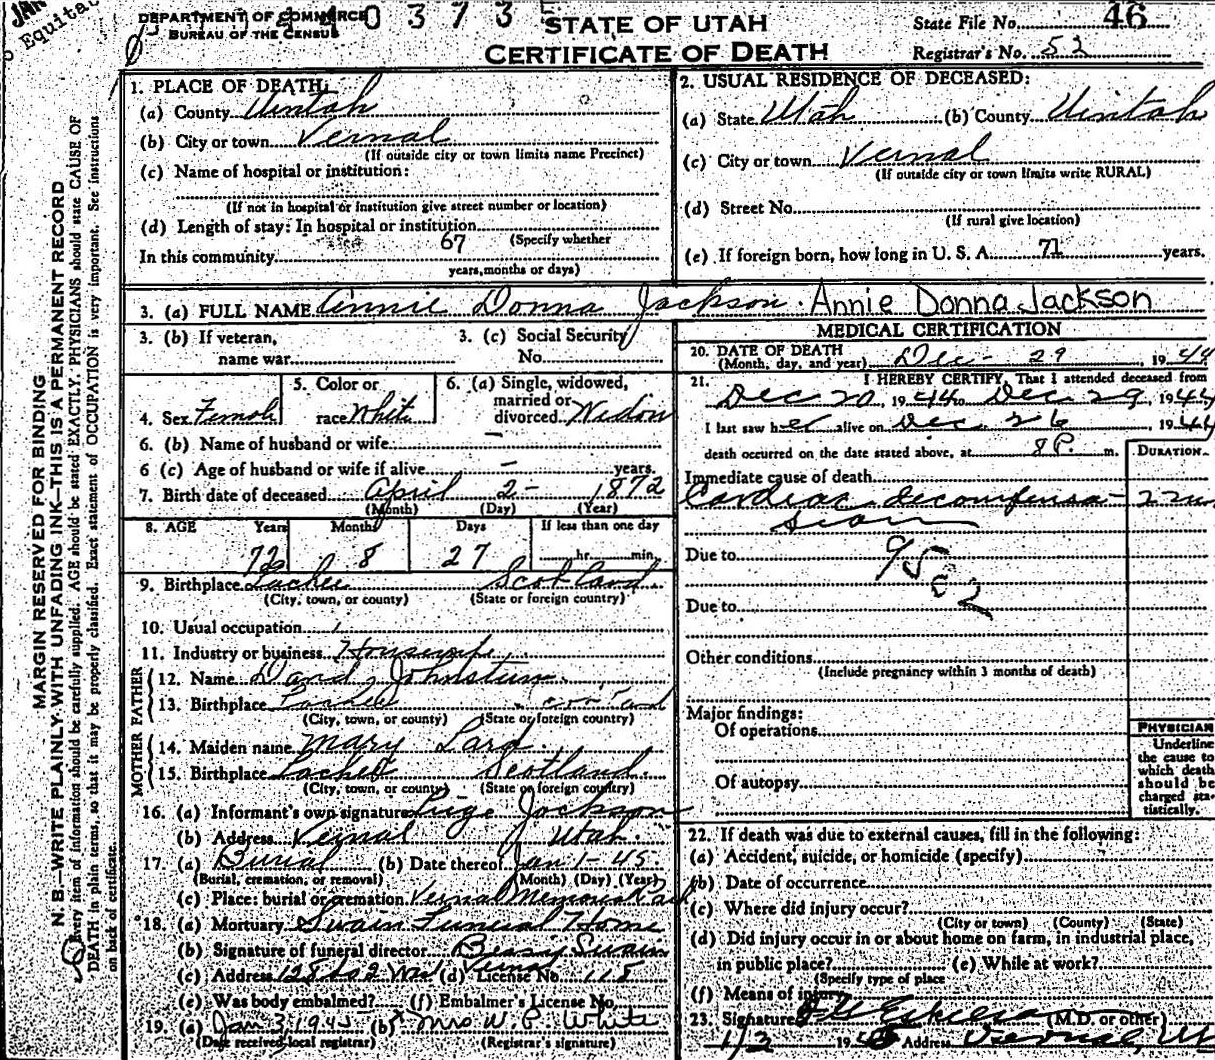 DEPARTMENT OF COMMERCE
BUREAU OF THE CENSUS
0 3 7 3
STATE OF UTAH
CERTIFICATE OF DEATH
State File No. 46
Registrar's No. 52
Equitac
MARGIN RESERVED FOR BINDING
N. B.—WRITE PLAINLY WITH UNFADING INK—THIS IS A PERMANENT RECORD
Every item of information should be carefully supplied. AGE should be stated EXACTLY. PHYSICIANS should state CAUSE OF
DEATH in plain terms, so that it may be properly classified. Exact statement of OCCUPATION is very important. See instructions
on back of certificate.
1. PLACE OF DEATH:
(a) County Uintah
(b) City or town Vernal
(If outside city or town limits name Precinct)
(c) Name of hospital or institution:
(If not in hospital or institution give street number or location)
(d) Length of stay: In hospital or institution
(Specify whether
In this community 67
years, months or days)
2. USUAL RESIDENCE OF DECEASED:
(a) State Utah (b) County Uintah
(c) City or town Vernal
(If outside city or town limits write RURAL)
(d) Street No.
(If rural give location)
(e) If foreign born, how long in U. S. A. 71 years.
3. (a) FULL NAME Annie Donna Jackson. Annie Donna Jackson
3. (b) If veteran,
name war
3. (c) Social Security
No.
4. Sex Female
5. Color or
race White
6. (a) Single, widowed,
married or
divorced Widow
6. (b) Name of husband or wife: —
6 (c) Age of husband or wife if alive — years.
7. Birth date of deceased April 2- 1872
(Month) (Day) (Year)
8. AGE Years Months Days If less than one day
72 8 27 hr. min.
9. Birthplace Scotland
(City, town, or county) (State or foreign country)
10. Usual occupation
11. Industry or business Housewife
FATHER
12. Name David Johnstun
13. Birthplace
(City, town, or county) (State or foreign country)
MOTHER
14. Maiden name Mary Lard.
15. Birthplace Scotland.
(City, town, or county) (State or foreign country)
16. (a) Informant's own signature Jackson
(b) Address Vernal Utah.
17. (a) Burial (b) Date thereof Jan 1-45.
(Burial, cremation, or removal) (Month) (Day) (Year)
(c) Place: burial or cremation Vernal Memorial Park
18. (a) Mortuary Swain Funeral Home
(b) Signature of funeral director Swain
(c) Address 128 So 2 West (d) License No. 115
(e) Was body embalmed? (f) Embalmer's License No.
19. (a) Jan 3, 1945 (b) Mrs W. P. White
(Date received local registrar) (Registrar's signature)
MEDICAL CERTIFICATION
20. DATE OF DEATH
(Month, day, and year) Dec - 29, 1944
21. I HEREBY CERTIFY, That I attended deceased from
Dec 20, 1944 to Dec 29, 1944
I last saw her alive on Dec 26, 1944
death occurred on the date stated above, at 8 P. m.
DURATION
Immediate cause of death
Cardiac decompensa-
sion
Due to 95
Due to
Other conditions
(Include pregnancy within 3 months of death)
Major findings:
Of operations
Of autopsy
PHYSICIAN
Underline
the cause to
which death
should be
charged sta-
tistically.
22. If death was due to external causes, fill in the following:
(a) Accident, suicide, or homicide (specify)
(b) Date of occurrence
(c) Where did injury occur?
(City or town) (County) (State)
(d) Did injury occur in or about home on farm, in industrial place,
in public place? (e) While at work?
(Specify type of place
(f) Means of injury
23. Signature (M.D. or other)
1/3 1945 Address Vernal, Ut